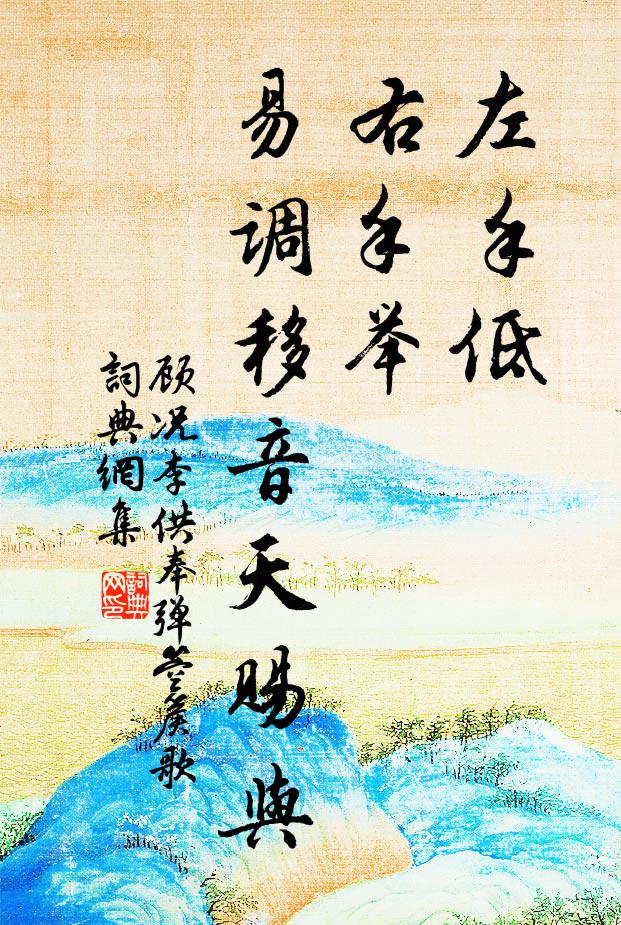 左手低
右手举
易调移音天赐與
顾况李供奉弹箜篌歌
詞典網集
詞典网印